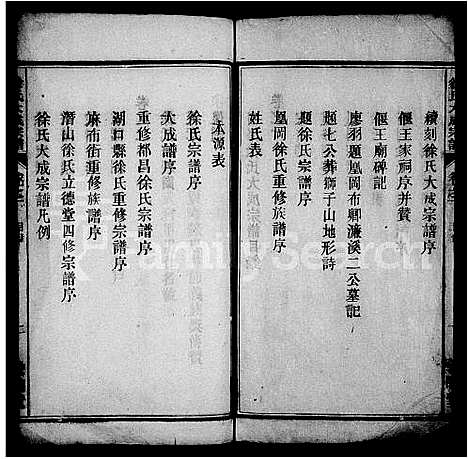 續刻徐氏大成宗譜序
偃王家祠序并贊
偃王廟碑記
廖羽題凰岡布卿濂溪二公墓記
題七公葬獅子山地形詩
題徐氏宗譜序
凰岡徐氏重修族譜序
姓氏表
本源表
徐氏宗譜序
大成譜序
重修都昌徐氏宗譜序
湖口縣徐氏重修宗譜序
麻布街重修族譜序
潛山徐氏立德堂四修宗譜序
徐氏大成宗譜凡例
FamilySearch